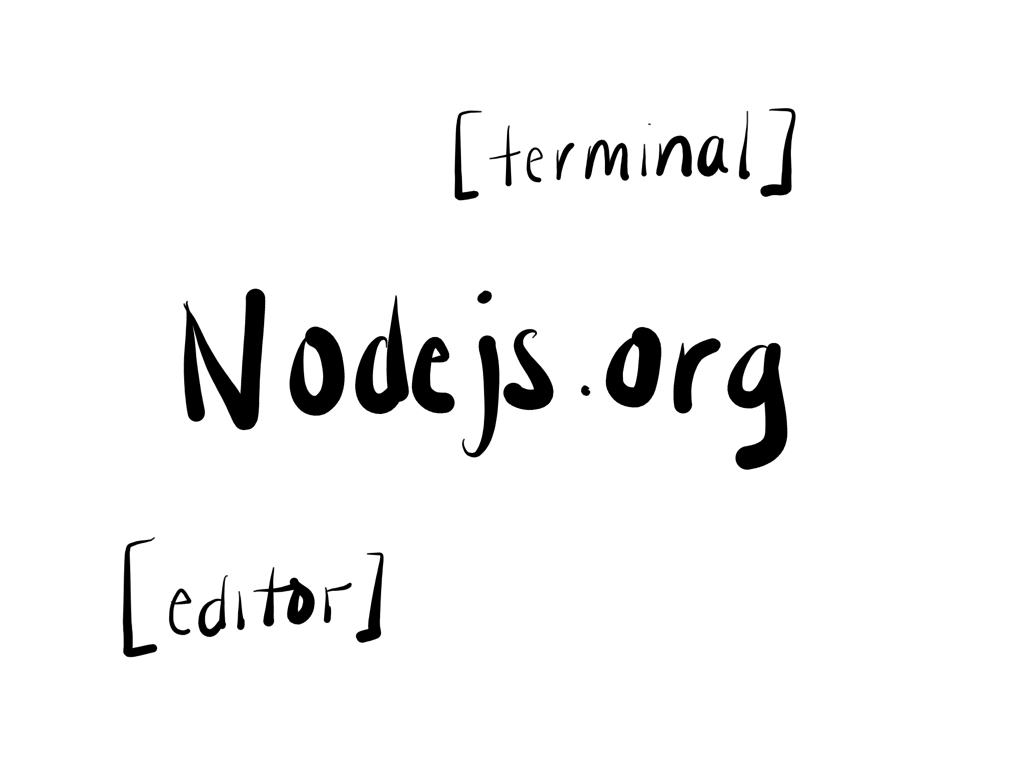 [terminal]
Nodejs.org
[editor]